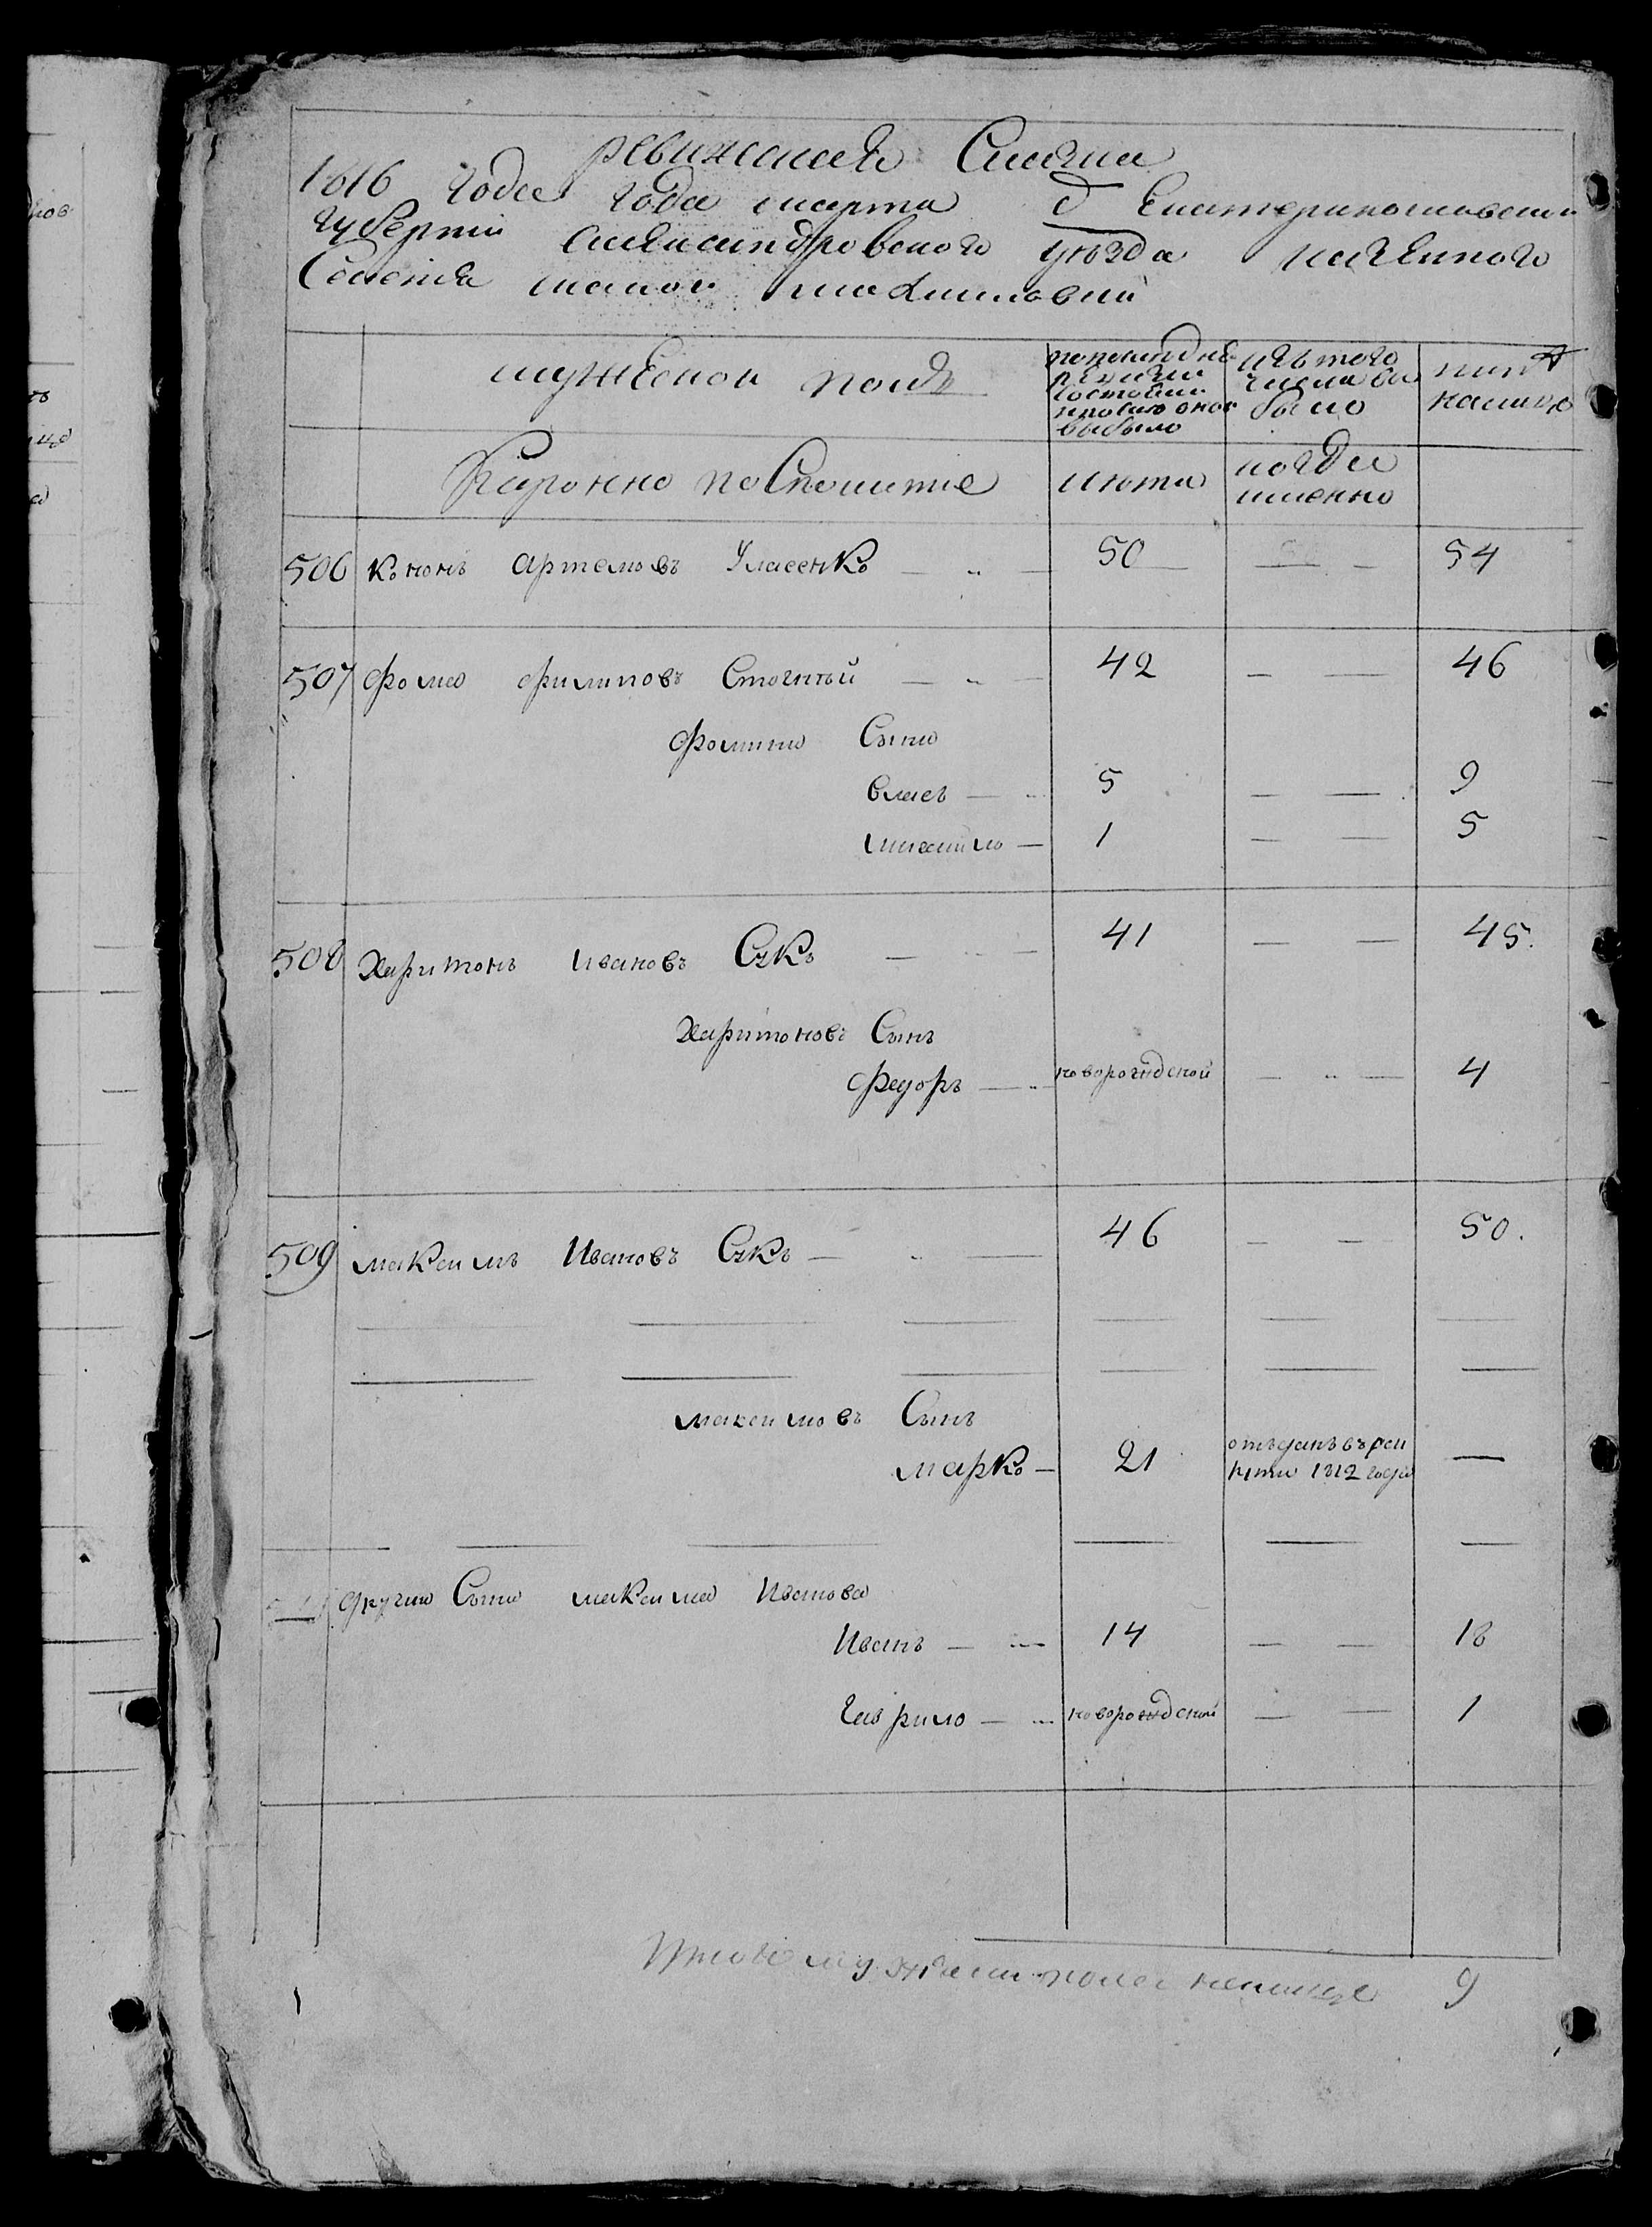 ревижская Сказка
1816 года года марта д Екатеринославской
губернiи александровского уѣзда казенного
Селенiя малой токмаковки
мужеской полъ
попоследней ревизии состояло и после оной выбыло
изъ того числа вы было
ныне налицо
лѣта
когда именно
506 кононъ артемовъ Уласенко — 50 — — 54
507 фома филиповъ Стогнiй — 42 — — 46
фомины Сыны
власъ — 5 — — 9
михаило — 1 — — 5
508 Харитонъ ивановъ Сукъ — 41 — — 45.
Харитоновъ Сынъ
федоръ — новорождской — — 4
509 максимъ Ивановъ Сукъ — 46 — — 50.
максимовъ Сынъ
марко — 21 отъданъ въ рек руты 1812 года —
другие Сыны максима Иванова
Иванъ — 14 — — 18
гаврило — новорождской — — 1
Итого мужеска пола налицо 9